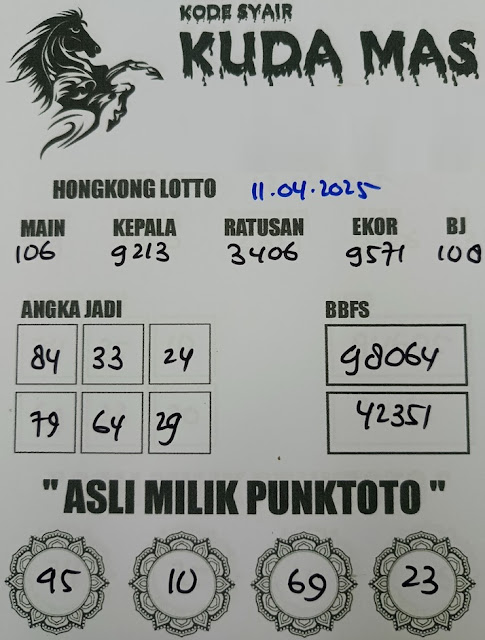 KODE SYAIR
KUDA MAS
HONGKONG LOTTO 11.04.2025
MAIN KEPALA RATUSAN EKOR BJ
106 9213 3406 9571 100
ANGKA JADI BBFS
84 33 24 98064
79 64 29 42351
" ASLI MILIK PUNKTOTO "
95 10 69 23